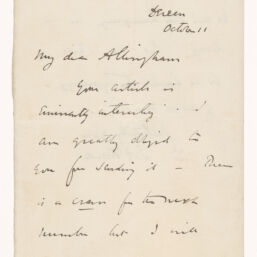 Dereen
October 11
My dear Allingham
Your article is
eminently interesting. I
am greatly obliged to
you for sending it – There
is a cram for the next
number but I will